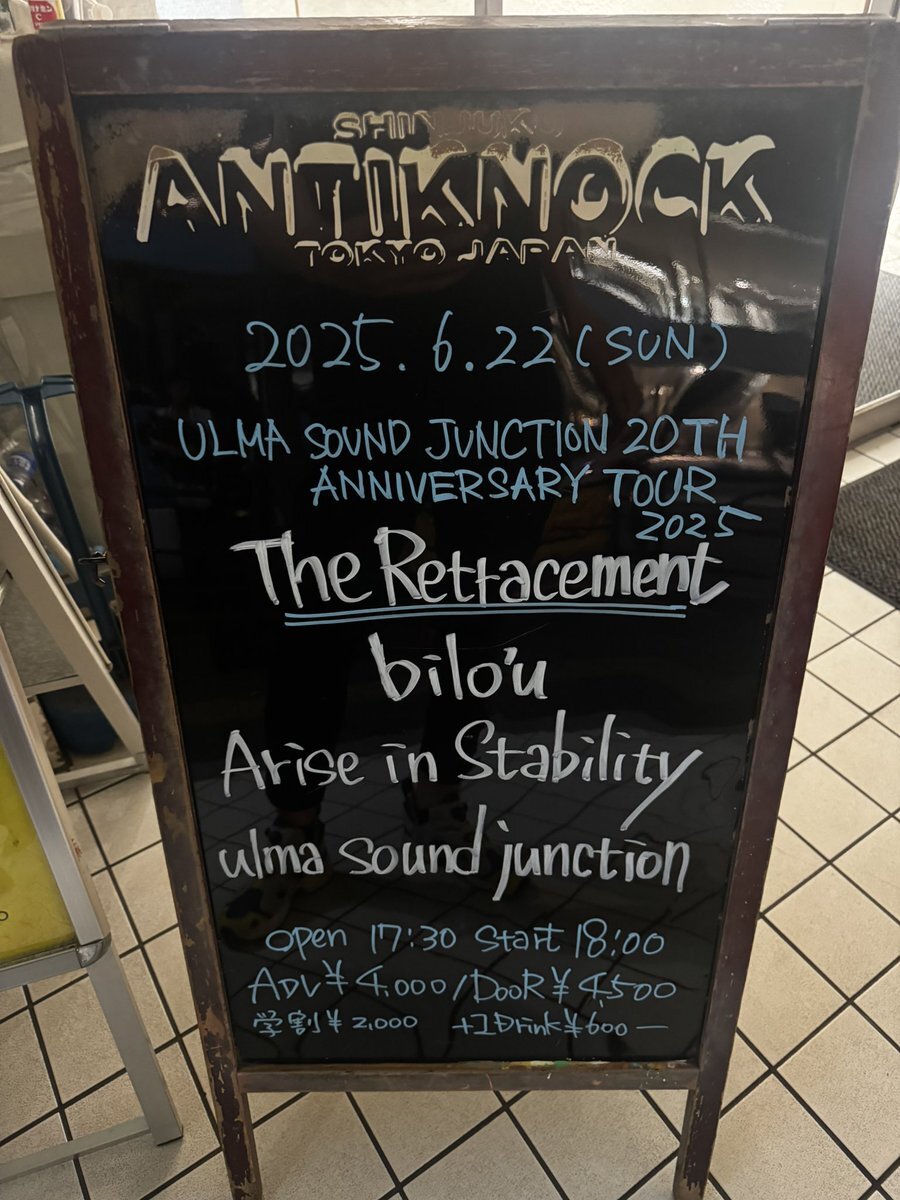 SHINJUKU
ANTIKNOCK
TOKYO JAPAN
2025.6.22(SUN)
ULMA SOUND JUNCTION 20TH
ANNIVERSARY TOUR
2025
The Retracement
bilo'u
Arise in Stability
ulma sound junction
open 17:30 start 18:00
ADV ¥4,000/DOOR ¥4,500
学割¥2,000 +1Drink¥600ー